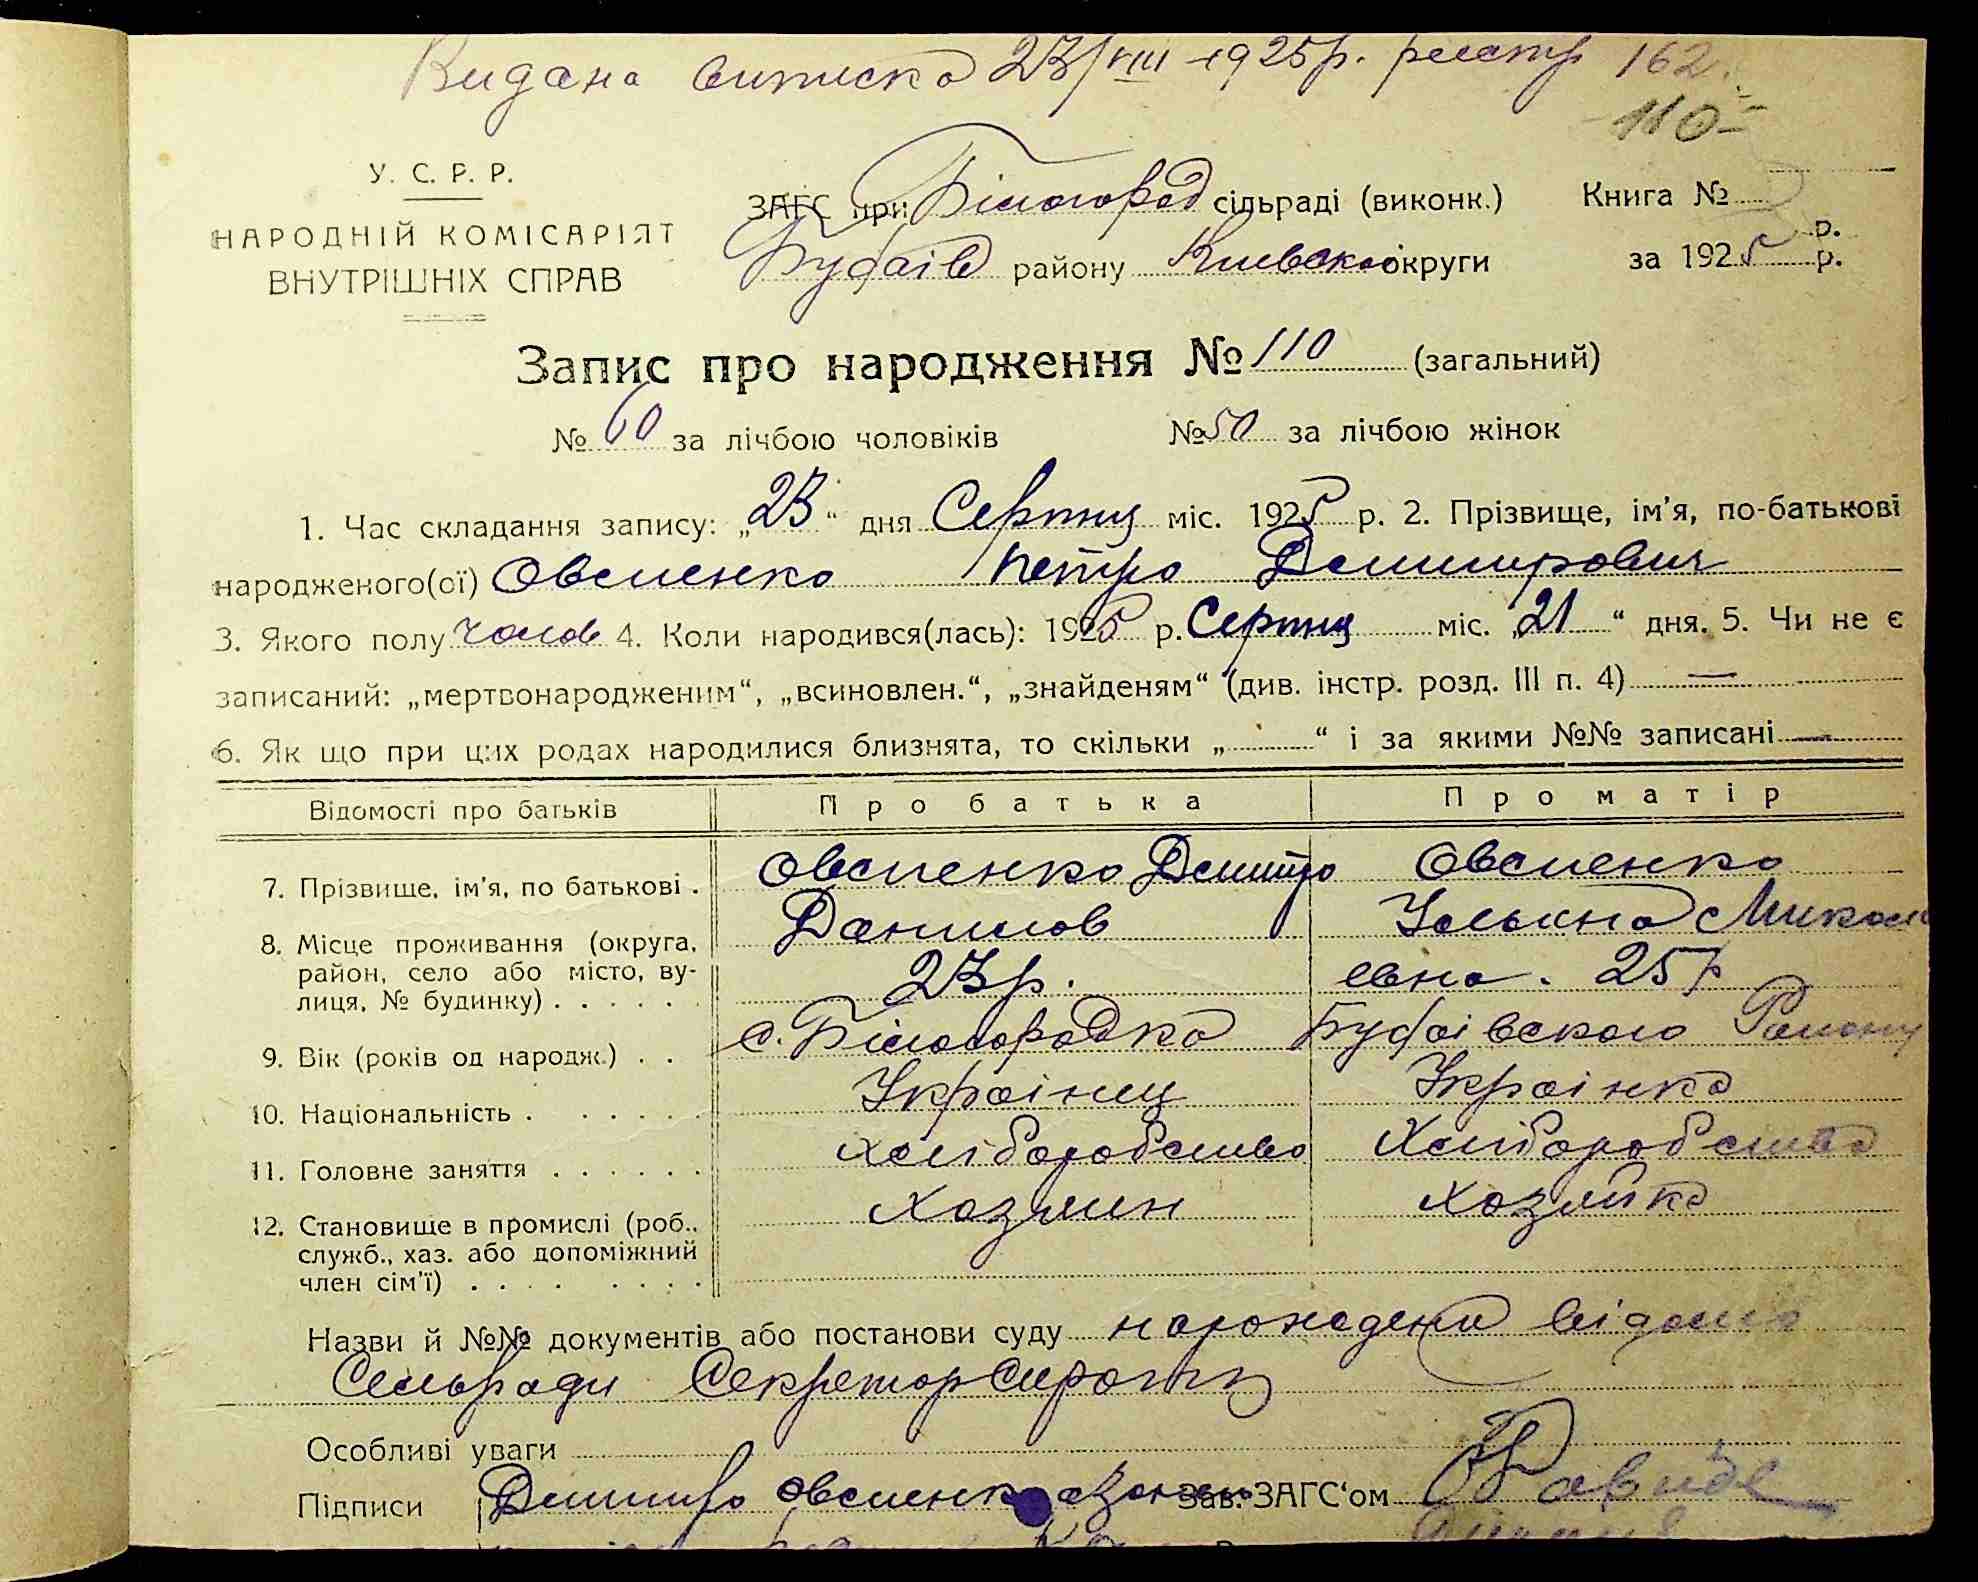 Видана виписка 23/VIII 1925р. реєстр 162.
110
У. С. Р. Р.
НАРОДНІЙ КОМІСАРІЯТ
ВНУТРІШНІХ СПРАВ
ЗАГС при Білогород сільраді (виконк.) Книга №
р.
Будаїв району Київської округи за 1925 р.
Запис про народження № 110 (загальний)
№ 60 за лічбою чоловіків № 50 за лічбою жінок
1. Час складання запису: „23“ дня Серпня міс. 1925 р. 2. Прізвище, ім’я, по-батькові
народженого(ої) Овсиенко Петро Дмитрович
3. Якого полу чолов 4. Коли народився(лась): 1925 р. Серпня міс. „21“ дня. 5. Чи не є
записаний: „мертвонародженим“, „всиновлен.“, „знайденям“ (див. інстр. розд. III п. 4) —
6. Як що при цих родах народилися близнята, то скільки „ “ і за якими №№ записані —
Відомості про батьків Про батька Про матір
7. Прізвище, ім’я, по батькові . Овсиенко Дмитро Овсиенко
Данилов Ульяна Микола
8. Місце проживання (округа,
район, село або місто, ву-
лиця, № будинку) . . . . . . 23р. евна. 25р
9. Вік (років од народж.) . . с. Білогородка Будаівского Району
10. Національність . . . . . . Украінец Украінка
11. Головне заняття . . . . . . Хліборобство Хліборобство
12. Становище в промислі (роб.,
служб., хаз. або допоміжний
член сім’ї) . . . . . . . . Хозяин Хозяйка
Назви й №№ документів або постанови суду нарождени відомо
Сельради Секретар
Особливі уваги
Підписи Дмитро Овсиенко Зав. ЗАГС‘ом